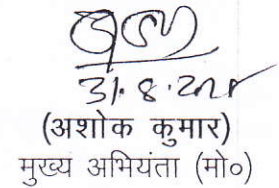 31.8.202
(अशोक कुमार)
मुख्य अभियंता (मो०)